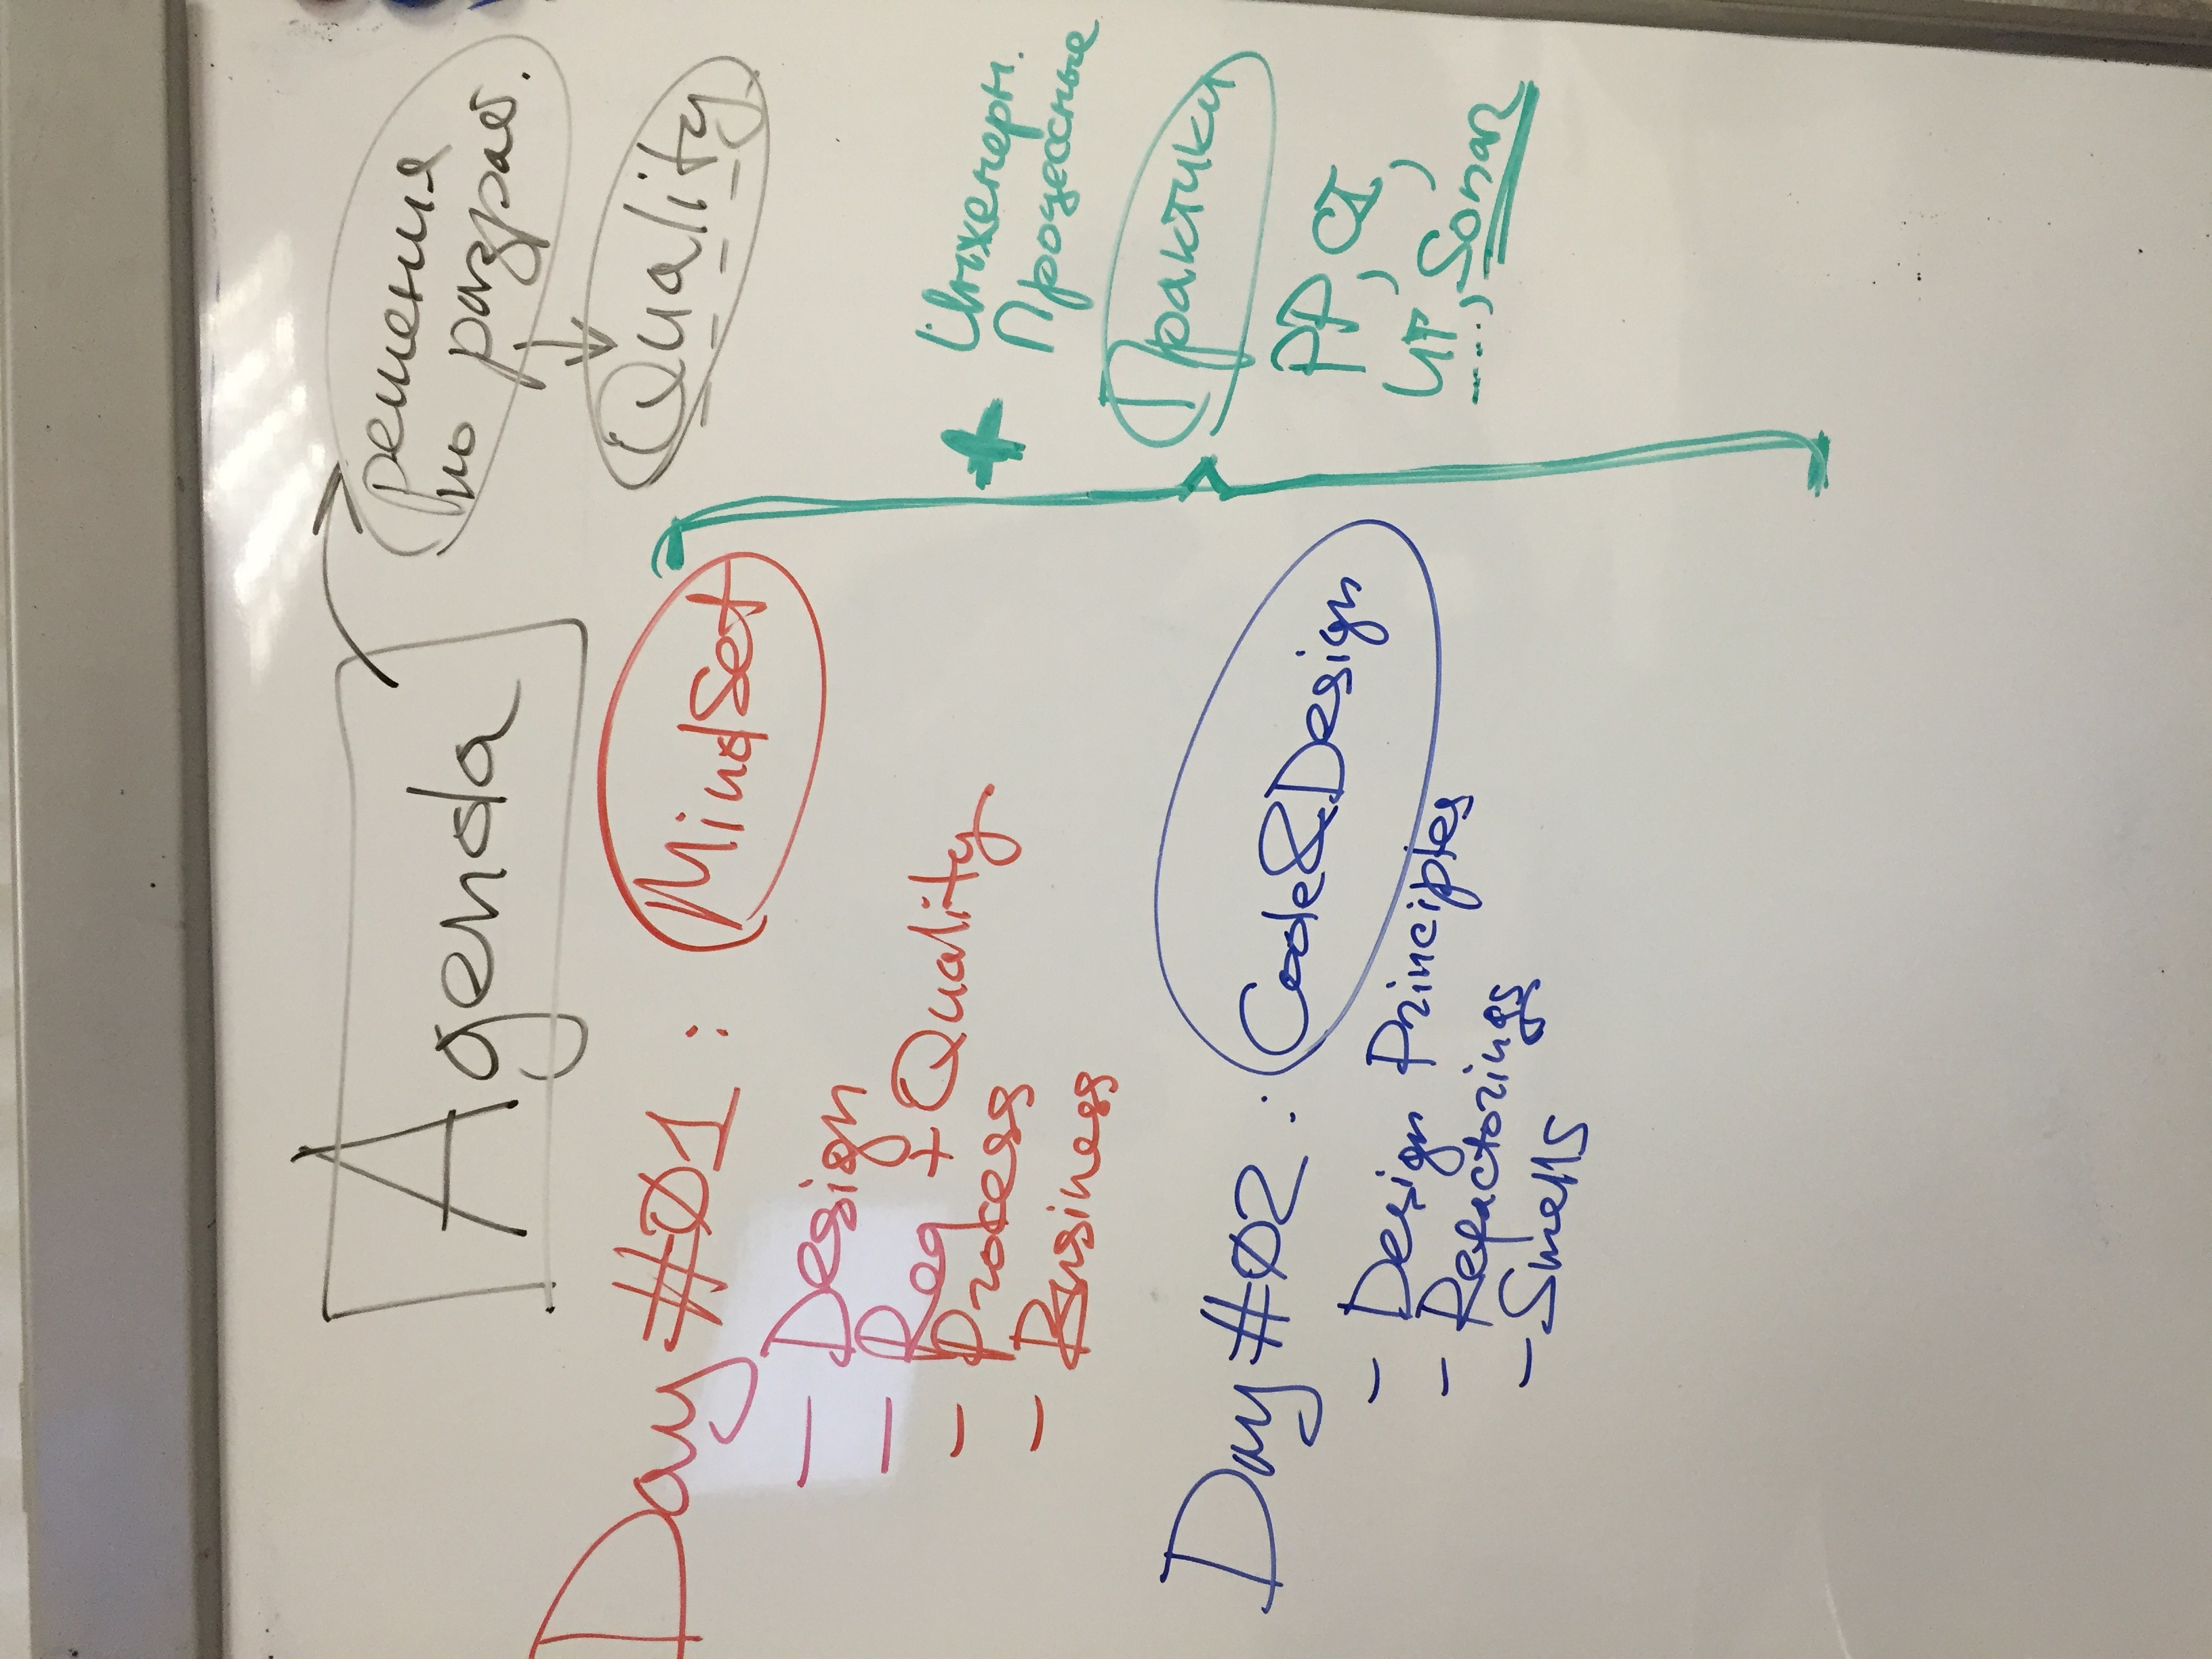 Agenda
решения
по разраб.
Quality
Day #01 : MindSet
- Design
- Req + Quality
- Process
- Business
Day #02 : Code&Design
- Design Principles
- Refactorings
- Smells
+ Инженерн.
Процессные
Практики
PP, CI,
UT, Sonar